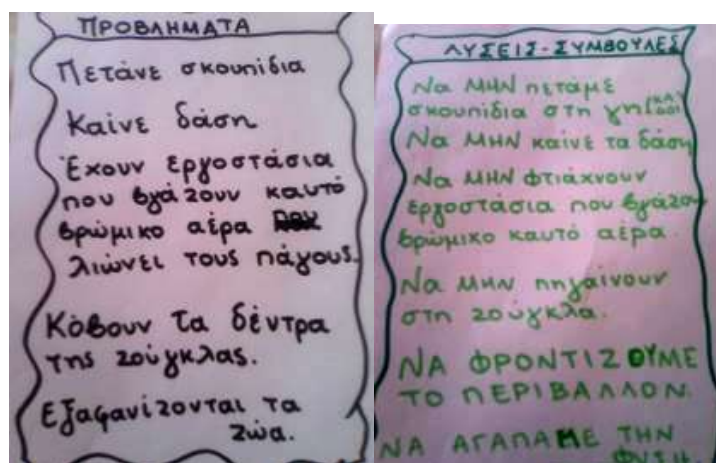 ΠΡΟΒΛΗΜΑΤΑ
Πετάνε σκουπίδια
Καίνε δάση
Έχουν εργοστάσια
που βγάζουν καυτό
βρώμικο αέρα
λιώνει τους πάγους.
Κόβουν τα δέντρα
της ζούγκλας.
Εξαφανίζονται τα
ζώα.
ΛΥΣΕΙΣ-ΣΥΜΒΟΥΛΕΣ
Να ΜΗΝ πετάμε
σκουπίδια στη γη
Να ΜΗΝ καίνε τα δάση
Να ΜΗΝ φτιάχνουν
εργοστάσια που βγάζουν
βρώμικο καυτό αέρα.
Να ΜΗΝ πηγαίνουν
στη ζούγκλα.
ΝΑ ΦΡΟΝΤΙΖΟΥΜΕ
ΤΟ ΠΕΡΙΒΑΛΛΟΝ.
ΝΑ ΑΓΑΠΑΜΕ ΤΗΝ
ΦΥΣΗ.